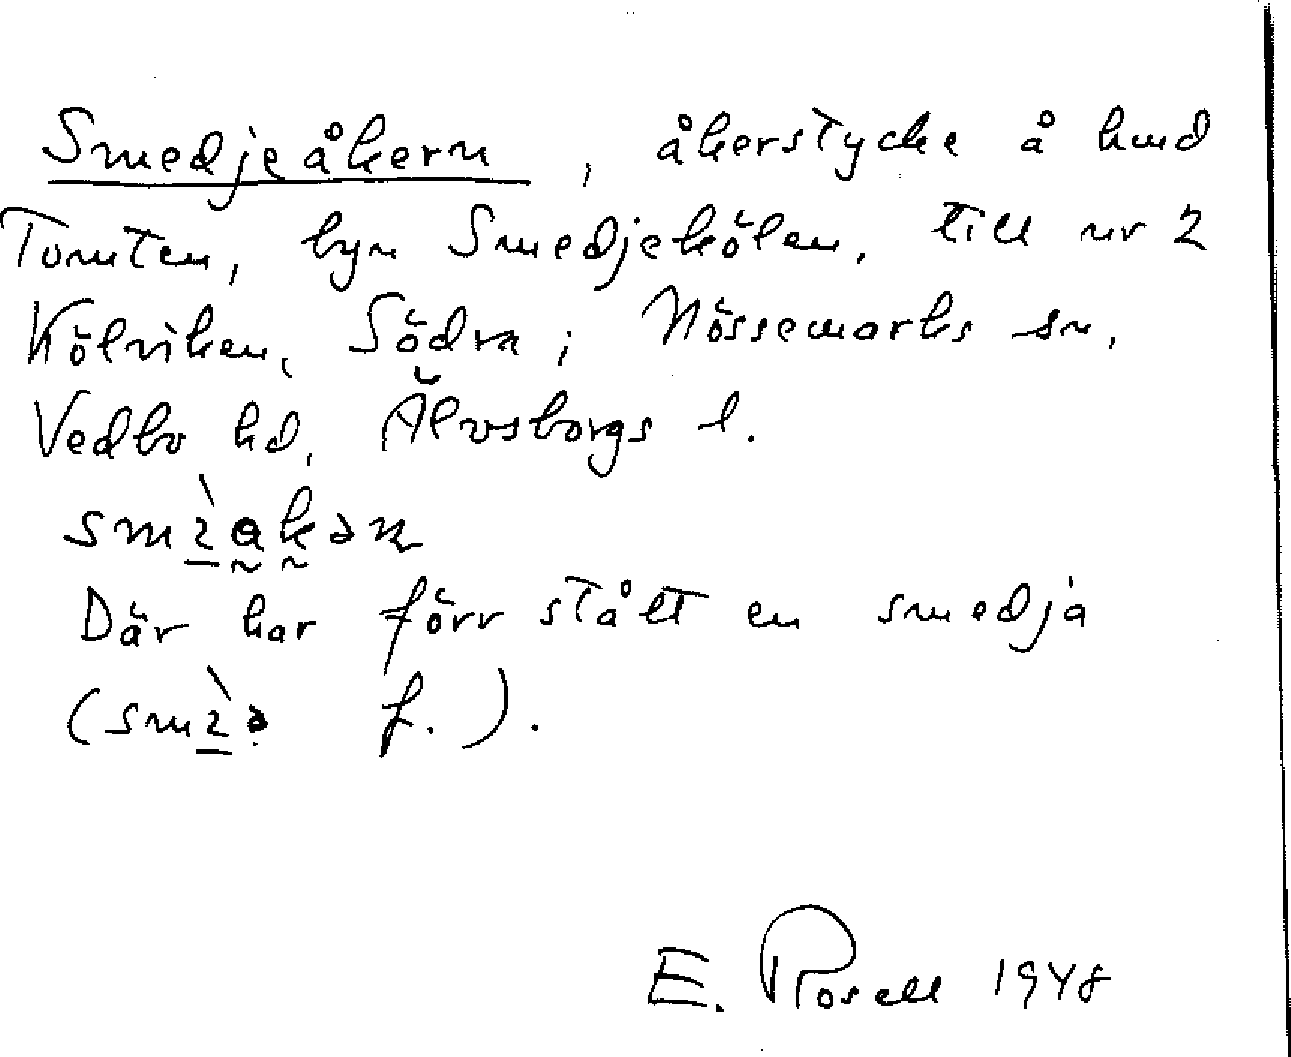 Smedjeåkern, åkerstycke å hmd
Tomten, byn Smedjekölen, till nr 2
Kölviken, Södra; Nössemarks sn,
Vedbo hd, Älvsborgs l.
Där har förr stått en smedja
f.).
E. Rosell 1948